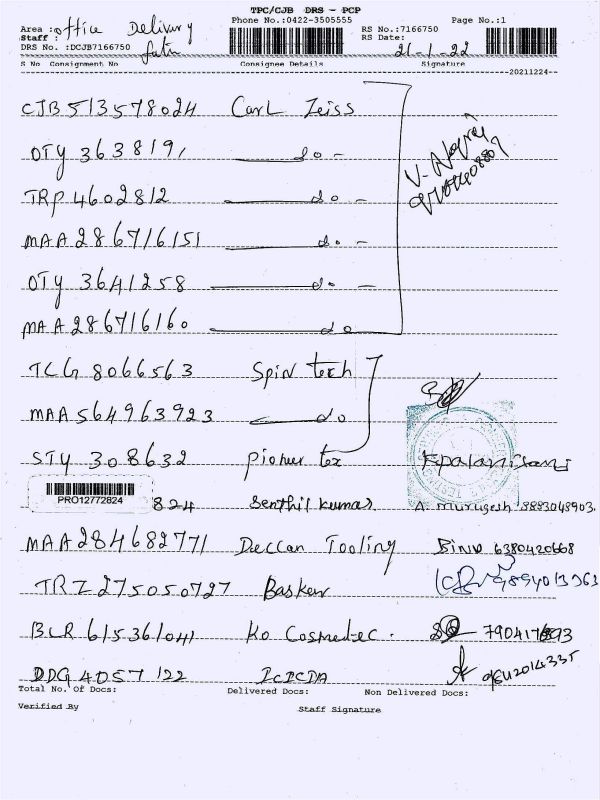 TPC/CJB DRS - PCP
Phone No.:0422-3505555 Page No.:1
Area : office Delivery
Staff :
RS No.:7166750
DRS No. :DCJB7166750
RS Date: 21-1-22
S No Consignment No Consignee Details Signature
20211224
CJB513578024 Carl Zeiss
OTY 363819, do -
TRP 4602812 do -
MAA 286716151 do -
OTY 3641258 do -
MAA 286716160 do
TCG 8066563 Spin tech
MAA 564963923 do
STY 308632 pioneer tex
PRO12772824
824 Senthil kumar A. murugesh 8883048903.
MAA 284682771 Deccan Tooling Binu 6380420668
TRZ 275050727 Basker
BLR 615361041 Ko Cosmetec.
DDG 4057122
Total No. Of Docs: Delivered Docs: Non Delivered Docs:
Verified By Staff Signature